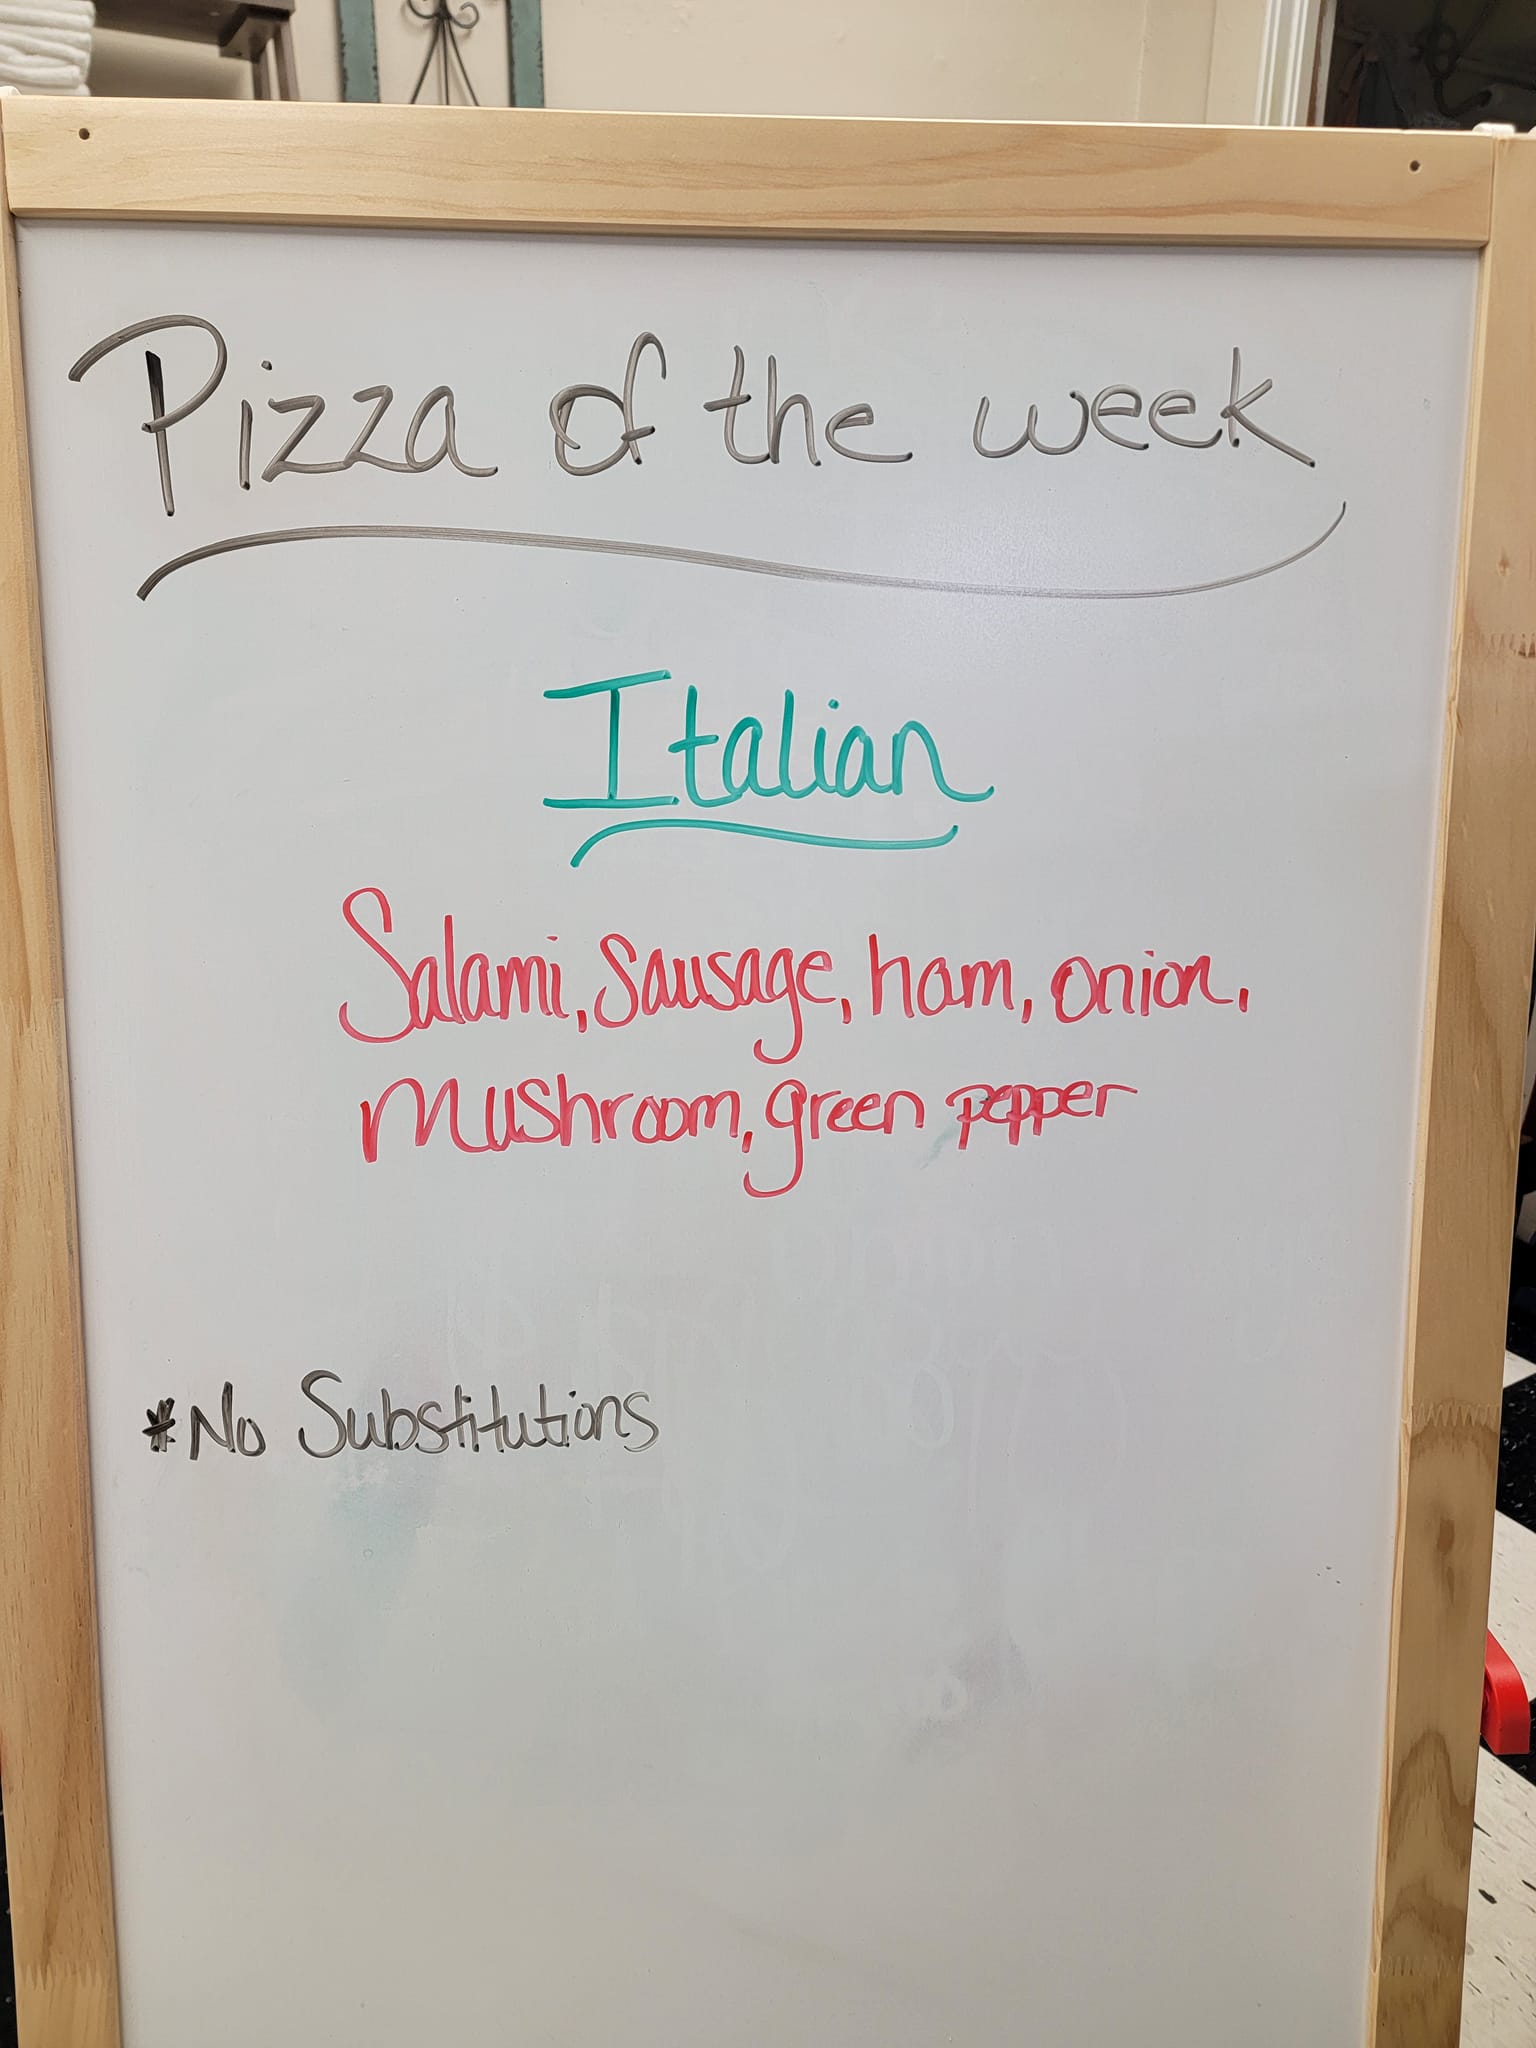 Pizza of the week
Italian
Salami, Sausage, ham, onion,
Mushroom, green pepper
*No Substitutions